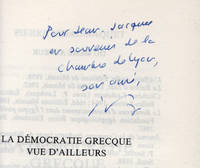 Pour Jean-Jacques
en souvenir de la
chambre de Lyon,
son ami,
LA DÉMOCRATIE GRECQUE
VUE D'AILLEURS